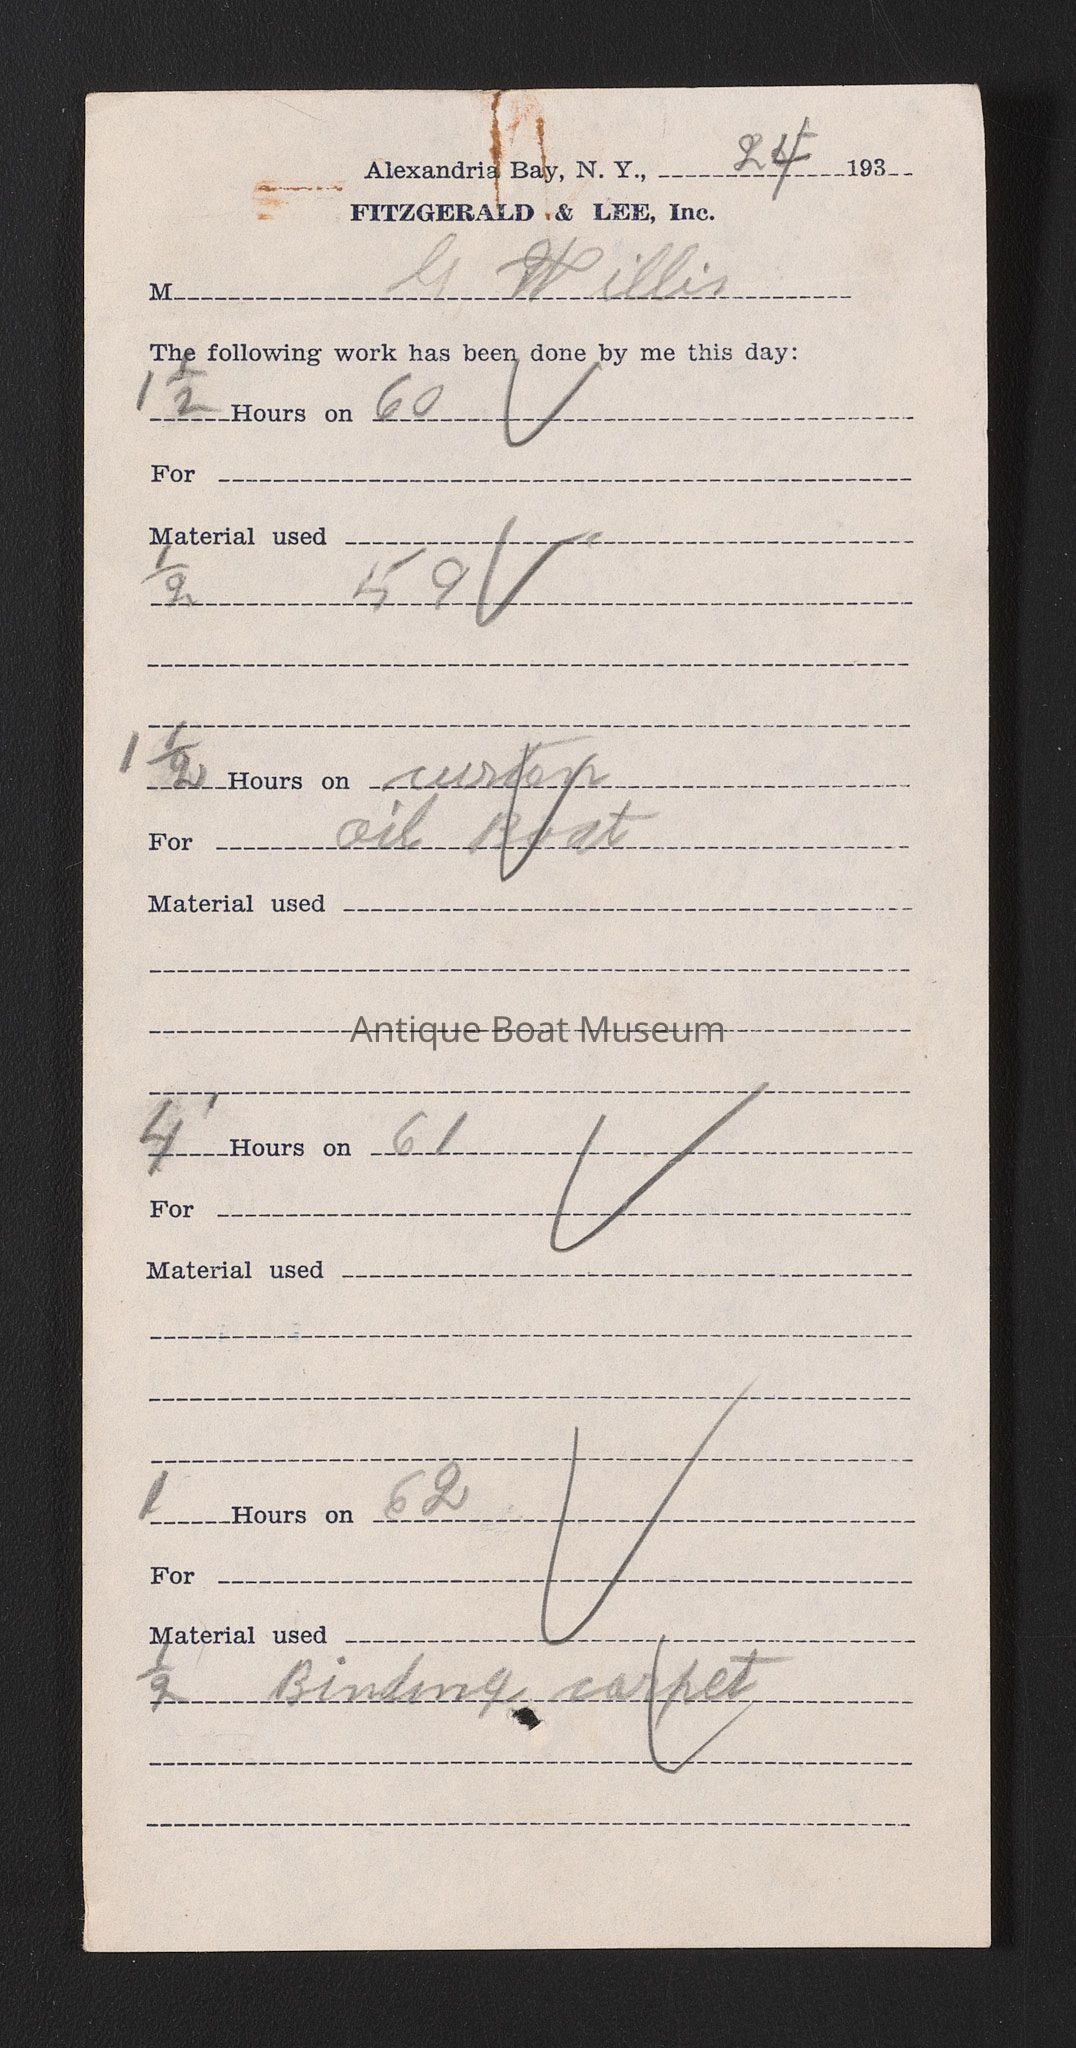 Alexandria Bay, N. Y., 24 193
FITZGERALD & LEE, Inc.
M G Willis
The following work has been done by me this day:
1 1/2 Hours on 60
For
Material used
1/2 59
1 1/2 Hours on curten
For oil Boat
Material used
Antique Boat Museum
4 Hours on 61
For
Material used
1 Hours on 62
For
Material used
1/2 Binding carpet